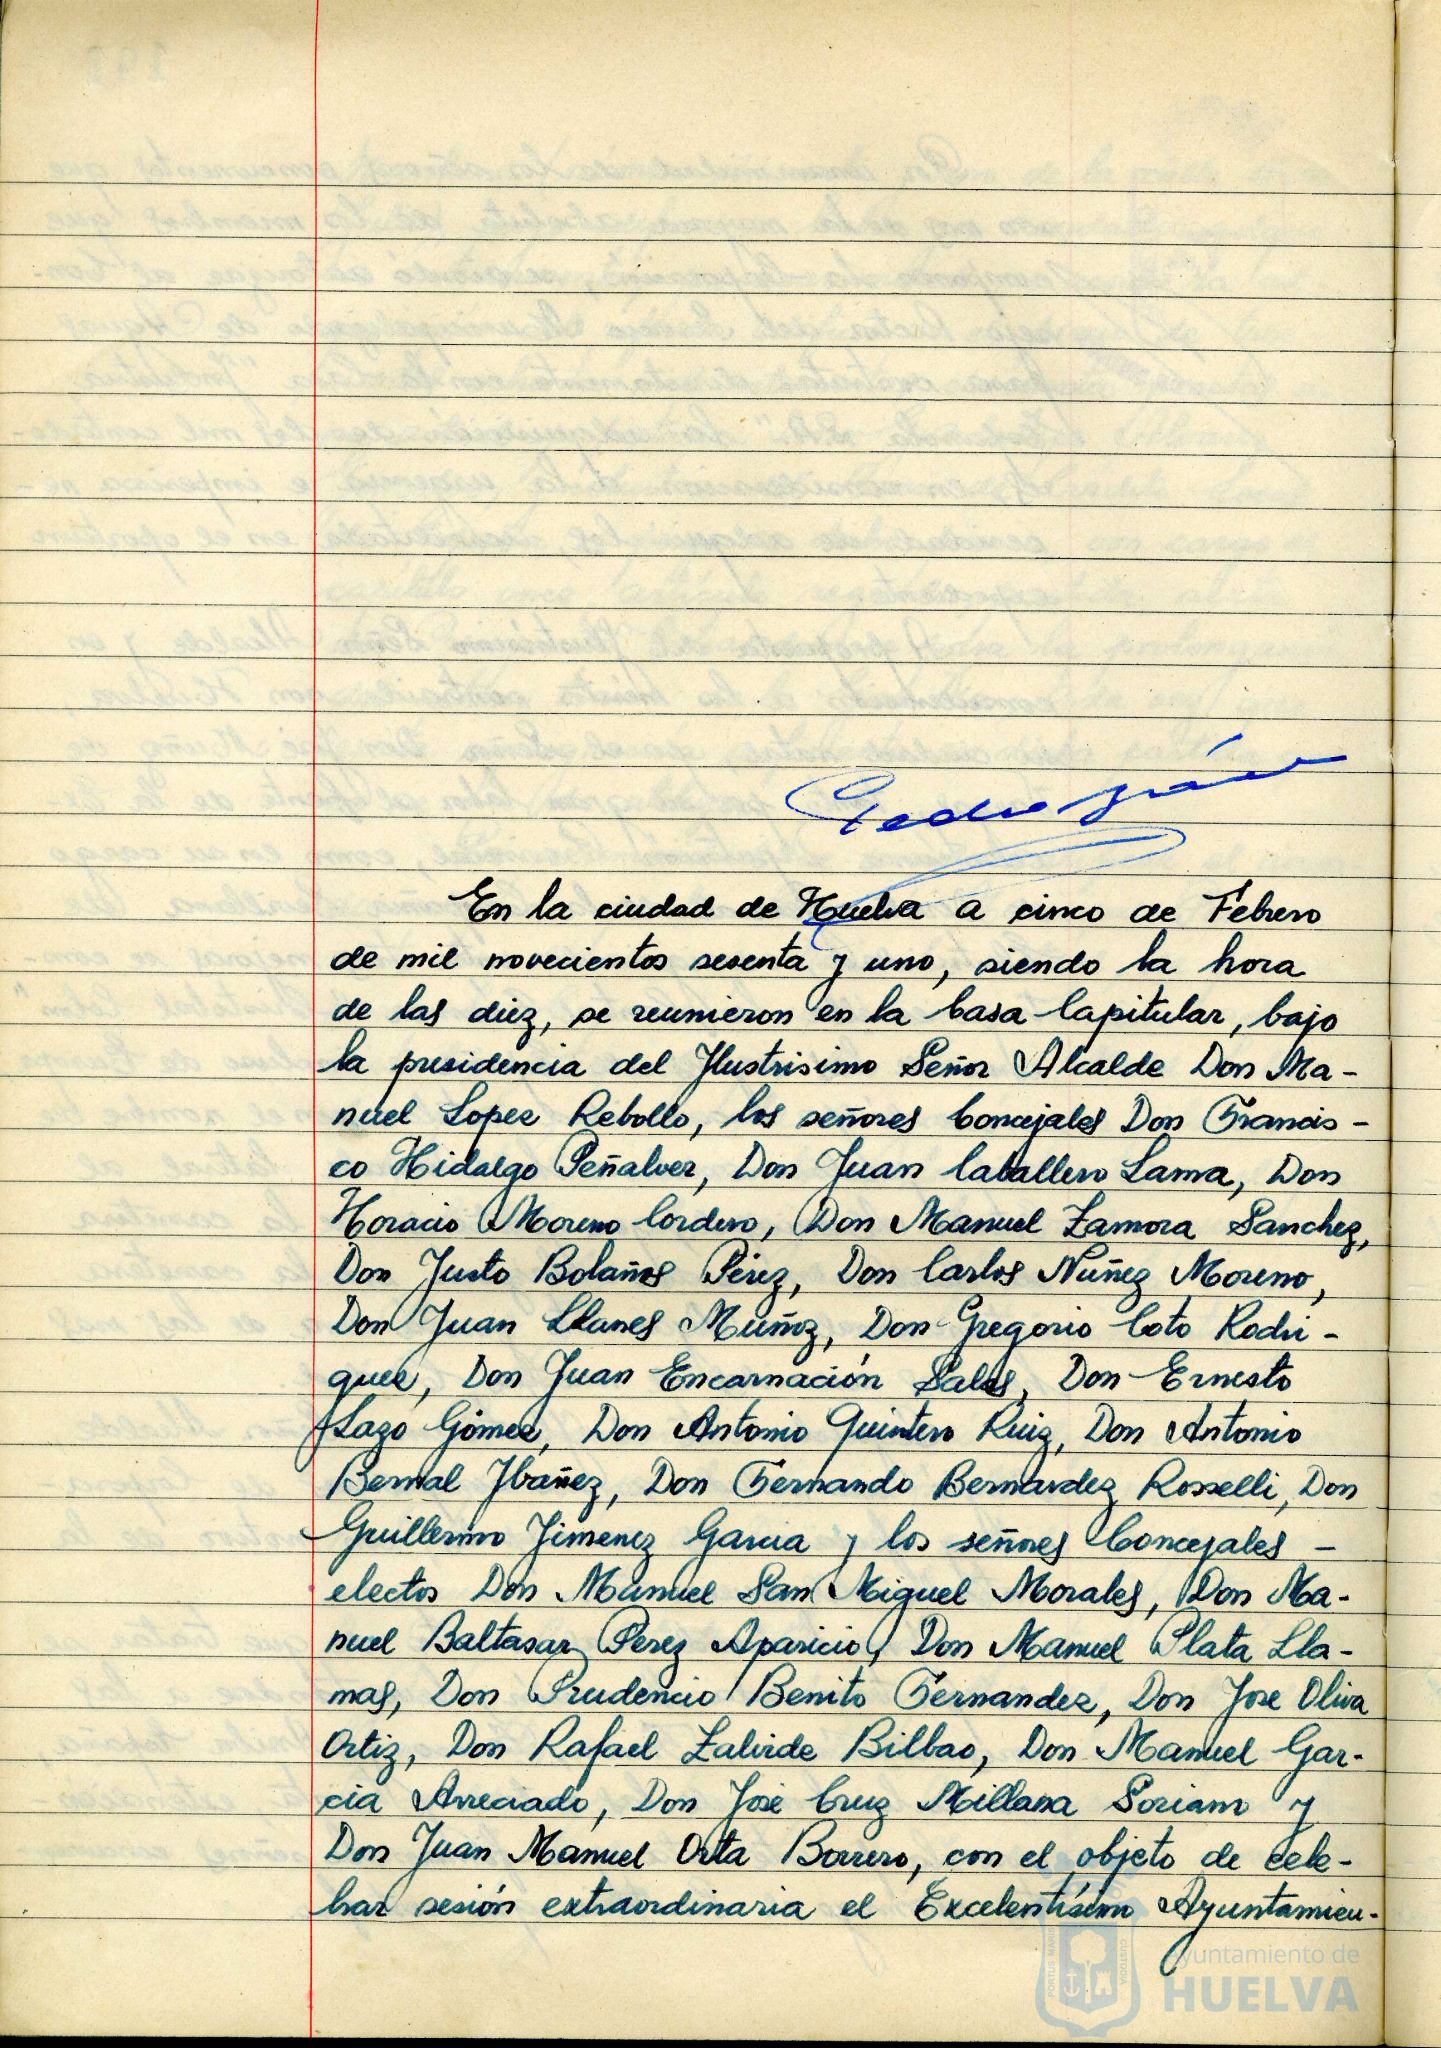 Pedro
En la ciudad de Huelva a cinco de Febrero
de mil novecientos sesenta y uno, siendo la hora
de las diez, se reunieron en la Casa Capitular, bajo
la presidencia del Ilustrisimo Señor Alcalde Don Ma-
nuel Lopez Rebollo, los señores Concejales Don Francis-
co Hidalgo Peñalver, Don Juan Caballero Lama, Don
Horacio Moreno Cordero, Don Manuel Zamora Sanchez,
Don Justo Bolaños Pérez, Don Carlos Nuñez Moreno,
Don Juan Llanes Muñoz, Don Gregorio Coto Rodri-
guez, Don Juan Encarnación Salas, Don Ernesto
Lazo Gómez, Don Antonio Quintero Ruiz, Don Antonio
Bernal Ibáñez, Don Fernando Bernardez Rosselli, Don
Guillermo Jimenez Garcia y los señores Concejales -
electos Don Manuel San Miguel Morales, Don Ma-
nuel Baltasar Perez Aparicio, Don Manuel Plata Lla-
mas, Don Prudencio Benito Fernandez, Don Jose Oliva
Ortiz, Don Rafael Zalvide Bilbao, Don Manuel Gar-
cia Arreciado, Don José Cruz Millana Soriano y
Don Juan Manuel Orta Borrero, con el objeto de cele-
brar sesión extraordinaria el Excelentísimo Ayuntamien-
Ayuntamiento de
HUELVA